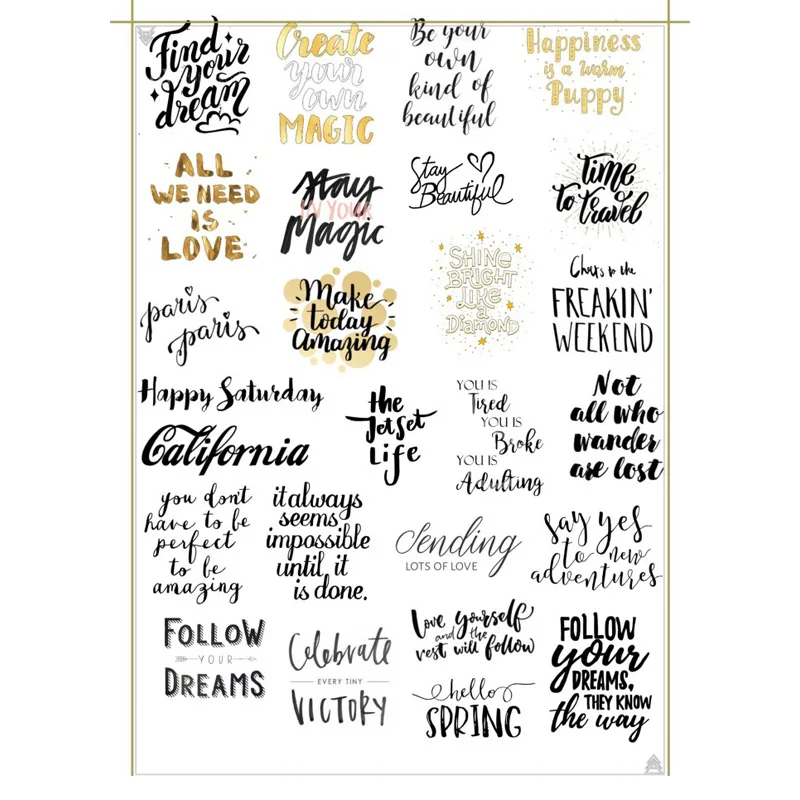 Find
your
dream
Create
your
own
MAGIC
Be your
own
kind of
beautiful
Happiness
is a warm
Puppy
ALL
WE NEED
IS
LOVE
Stay
IN YOUR
Magic
Stay
Beautiful
Time
to travel
paris
paris
Make
today
Amazing
SHINE
BRIGHT
LIKE
a
DIAMOND
Cheers to the
FREAKIN'
WEEKEND
Happy Saturday
California
the
JetSet
Life
YOU IS
Tired
YOU IS
Broke
YOU IS
Adulting
Not
all who
wander
are lost
you dont
have to be
perfect
to be
amazing
it always
seems
impossible
until it
is done.
Sending
LOTS OF LOVE
say yes
to new
adventures
FOLLOW
YOUR
DREAMS
Celebrate
EVERY TINY
VICTORY
Love yourself
and the
rest will follow
hello
SPRING
FOLLOW
your
DREAMS,
THEY KNOW
the way